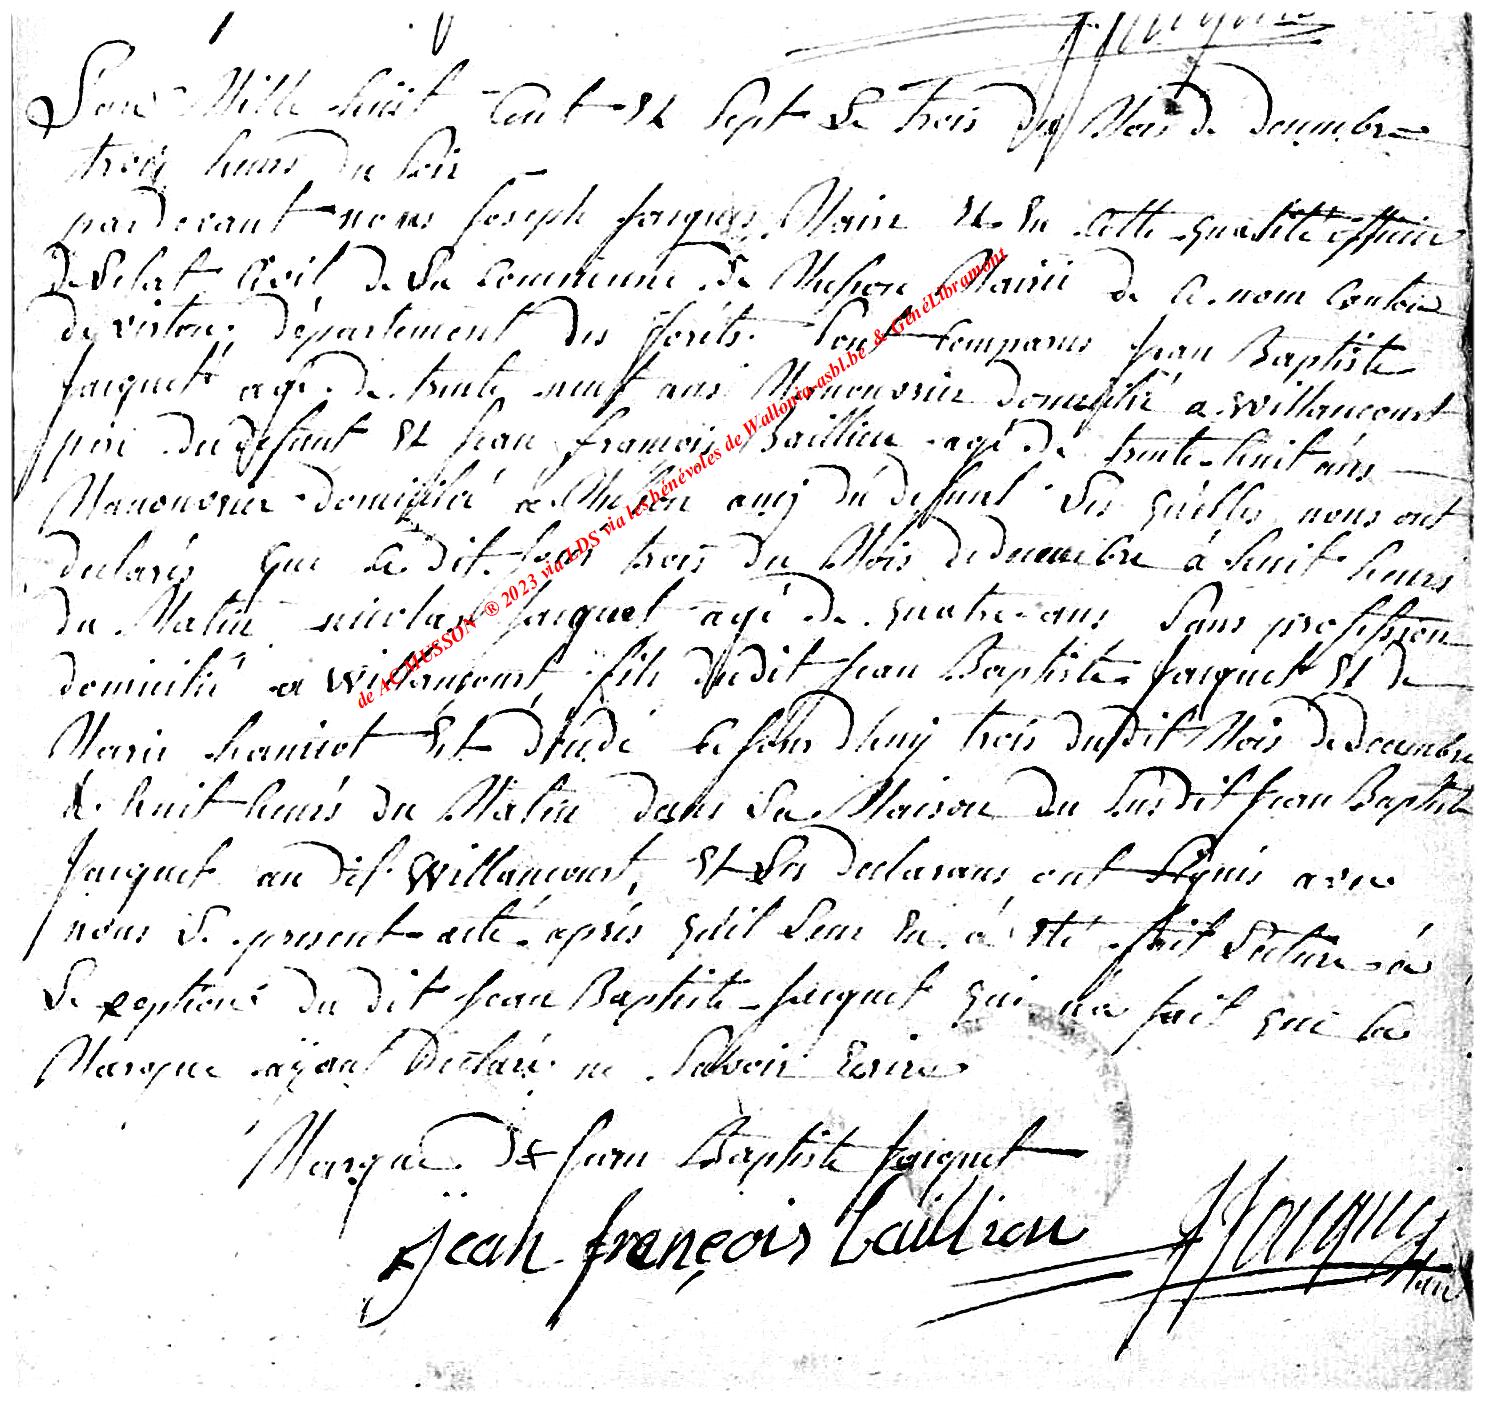 Lan Mille huit Cent Et Sept Le trois du Mois de decembre
trois heures du Soir
pardevant nous Joseph Jacques Maire Et En Cette qualité officier
de Letat Civil de La Commune de Musson Mairie de Ce nom Canton
de virton, département des forêts. Sont Comparus Jean Baptiste
Jacquet agé de trente neuf ans Manouvrier domicilié a Willancourt
pere du defunt Et Jean françois Baillieu agé de trente huit ans
Manouvrier domicilié a Musson amy du defunt Les quelles nous ont
declarés que Le dit Jour trois du Mois de decembre à huit heures
du Matin nicolas Jacquet agé de quatre ans Sans profession
domicilié a Willancourt, fils dudit Jean Baptiste Jacquet Et de
Marie haniot Est décédé Le Jour dhuy trois dudit Mois de decembre
à huit heures du Matin dans La Maison du Susdit Jean Baptiste
Jacquet au dit Willancourt, Et Les declarans ont Signés avec
nous Le present acte après quil Leur En à Eté fait Lecture à
Le xeption du dit Jean Baptiste Jacquet qui na fait que Sa
Marque aÿant Declaré ne Savoir Ecrire
Marque de Jean Baptiste Jacquet
jean françois baillieu
JJacques
Maire
de AC MUSSON ® 2023 via LDS via les bénévoles de Wallonia-asbl.be & GénéLibramont